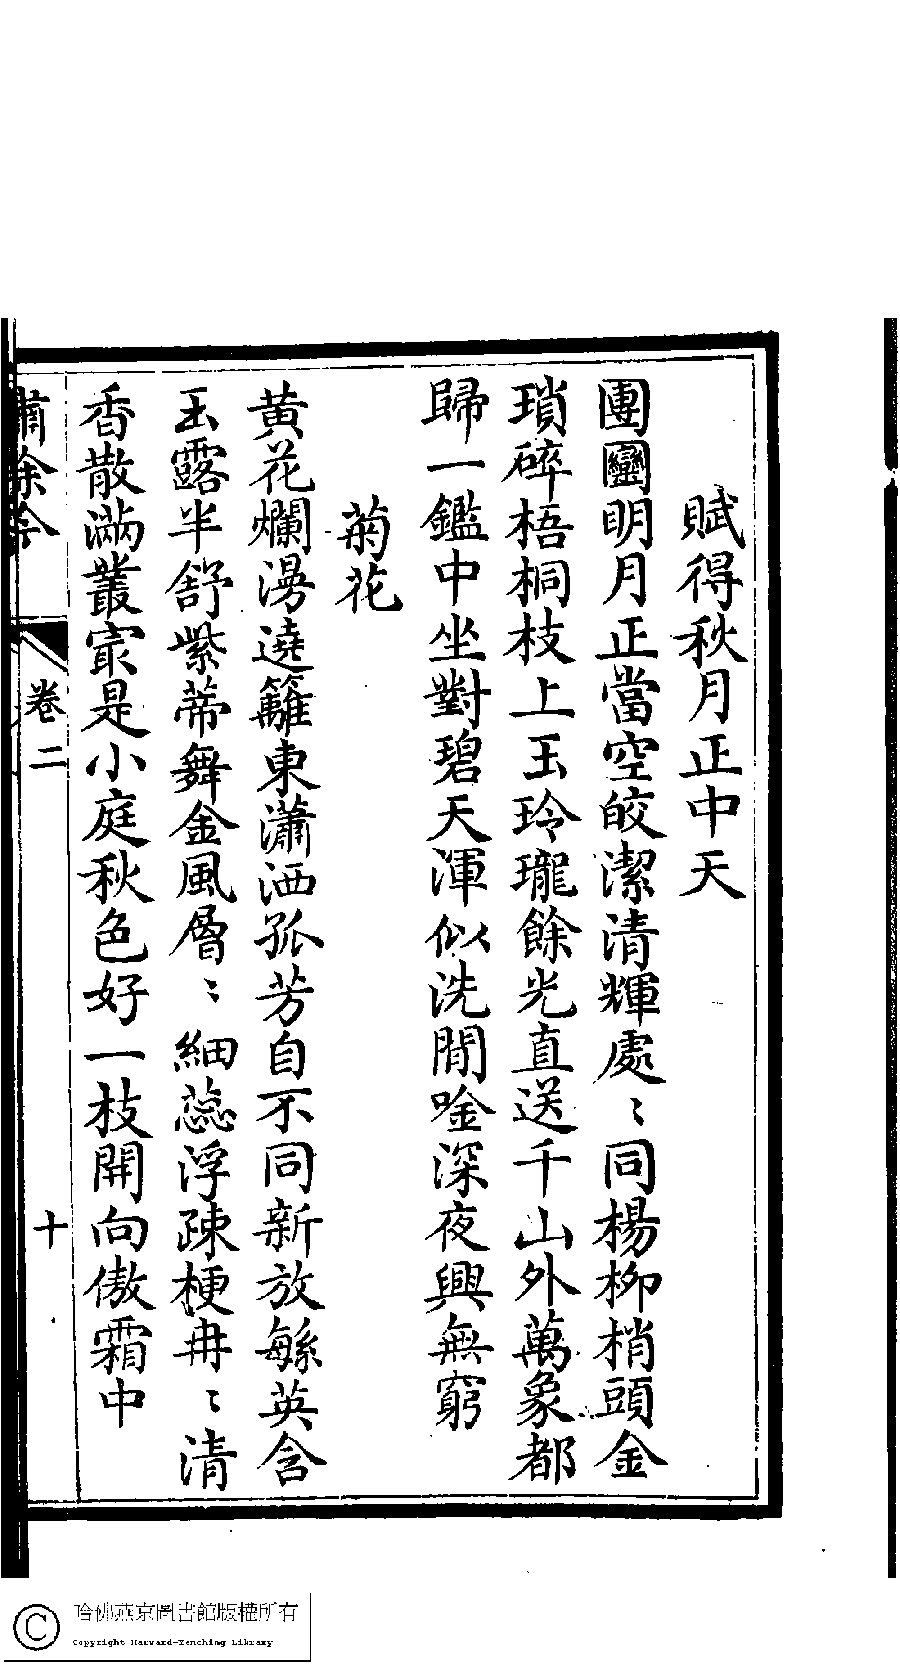 賦得秋月正中天
團圞明月正當空皎潔清輝處〻同楊柳梢頭金
瑣碎梧桐枝上玉玲瓏餘光直送千山外萬象都
歸一鑑中坐對碧天渾似洗閒唫深夜興無窮
菊花
黄花爛漫遶籬東瀟洒孤芳自不同新放繁英含
玉露半舒紫蒂舞金風層〻細蕊浮疎梗冉〻清
香散滿叢㝡是小庭秋色好一枝開向傲霜中
繡餘吟
卷二
十
哈佛燕京圖書館版權所有
Copyright Harvard-Yenching Library